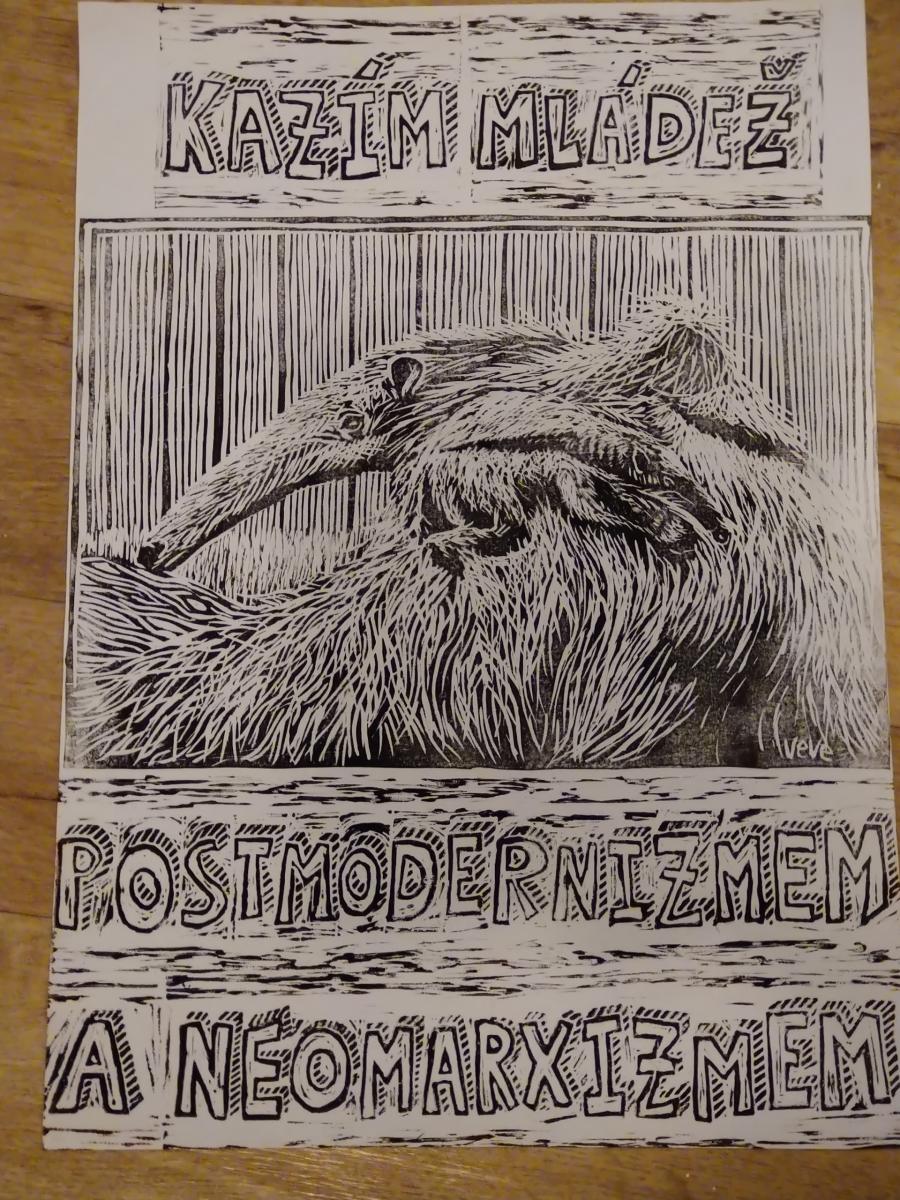 KAZÍM MLÁDEŽ
veve
POSTMODERNIZMEM
A NEOMARXIZMEM